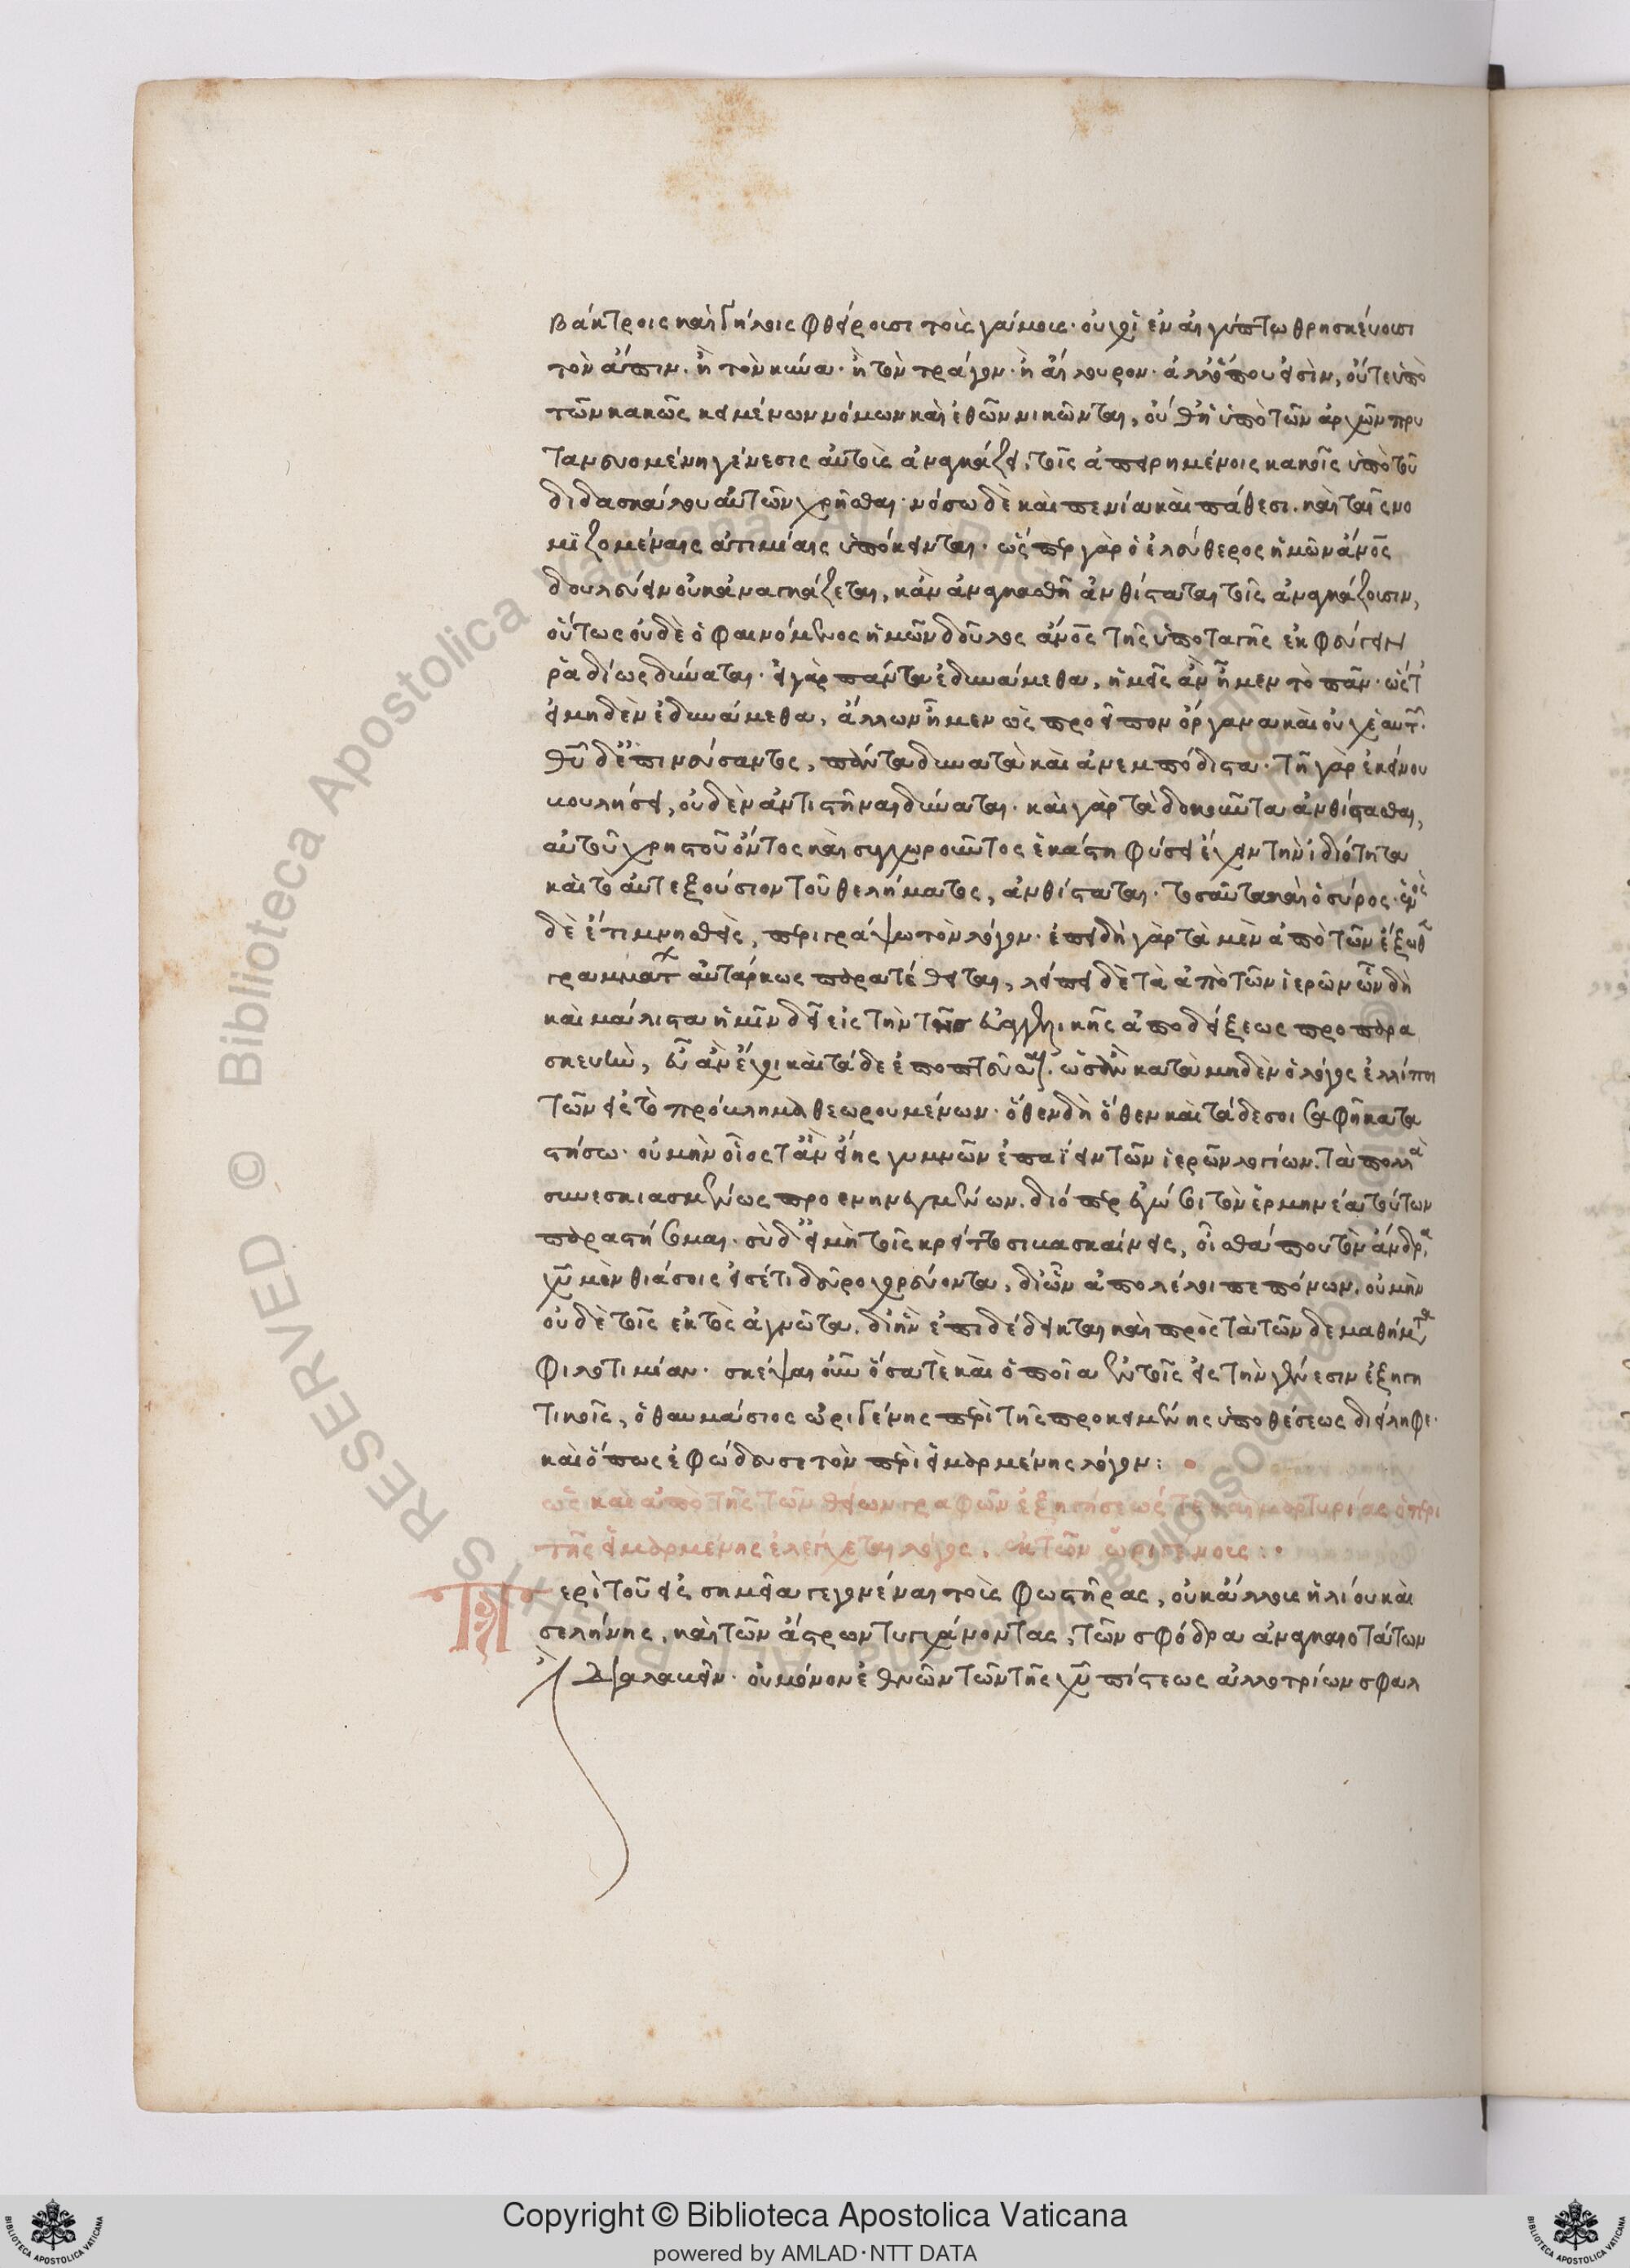 βάκτροις καὶ Γήλοις φθείρουσι τοὺς γάμους· οὐχὶ ἐν αἰγύπτῳ θρησκεύουσι
τὸν ἄπιν. ἢ τὸν κύνα· ἢ τὸν τράγον· ἢ αἴλουρον· ἀλλ' ὅπου εἰσὶν, οὔτε ὑπὸ
τῶν κακῶς κειμένων νόμων καὶ ἐθῶν νικῶνται, οὔθ' ἡ ὑπὸ τῶν ἀρχῶν πρυ
τανευομένη γένεσις αὐτοὺς ἀναγκάζει, τοῖς ἀπειρημένοις κακοῖς ὑπὸ τοῦ
διδασκάλου αὐτῶν χρῆσθαι· νόσῳ δὲ καὶ πενίᾳ καὶ πάθεσι. καὶ ταῖς νο
μιζομέναις ἀτιμίαις ὑπόκεινται· ὥσπερ γὰρ ὁ ἐλεύθερος ἡμῶν ἄνος
δουλεύειν οὐκ ἀναγκάζεται, κἂν ἀναγκασθῇ ἀνθίσταται τοῖς ἀναγκάζουσιν,
οὕτως οὐδὲ ὁ φαινόμενος ἡμῶν δοῦλος ἄνος τῆς ὑποταγῆς ἐκφεύγειν
ῥᾳδίως δύναται· εἰ γὰρ πάντα ἐδυνάμεθα, ἡμεῖς ἂν ἦμεν τὸ πᾶν· ὥστ'
εἰ μηδὲν ἐδυνάμεθα, ἄλλων ἦμεν ὡς προεῖπον ὄργανα καὶ οὐχ ἑαυτῶν.
θυ δ' ἐπινεύσαντος, πάντα δυνατὰ καὶ ἀνεμπόδιστα· τῇ γὰρ ἐκείνου
βουλήσει, οὐδὲν ἀντιστῆναι δύναται· καὶ γὰρ τὰ δοκοῦντα ἀνθίστασθαι,
αὐτοῦ χρηστοῦ ὄντος καὶ συγχωροῦντος ἑκάστῃ φύσει ἔχειν τὴν ἰδιότητα
καὶ τὸ αὐτεξούσιον τοῦ θελήματος, ἀνθίσταται· τοσαῦτα καὶ ὁ σύρος·
δὲ ἔτι μνησθεὶς, περιγράψω τὸν λόγον· ἐπειδὴ γὰρ τὰ μὲν ἀπὸ τῶν ἔξωθεν
γραμμάτων αὐτάρκως παρατέθειται, λείπει δὲ τὰ ἀπὸ τῶν ἱερῶν ὧν δὴ
καὶ μάλιστα ἡμῖν δεῖ εἰς τὴν τῆς εὐαγγελικῆς ἀποδείξεως προπαρα
σκευὴν, εὖ ἂν ἔχοι καὶ τάδε ἐποπτεῦσαι. ὡς ἂν κατὰ μηδὲν ὁ λόγος ἐλλίποι
τῶν εἰς τὸ πρόβλημα θεωρουμένων· ὅθεν δὴ ὅθεν καὶ τάδε σοι σαφῆ κατα
στήσω· οὐ μὴν οἷός τ' ἂν εἴης γυμνῶν ἐπαΐειν τῶν ἱερῶν λογίων. τὰ πολλὰ
συνεσκιασμένως προενηνεγμένων. διόπερ ἐγώ σοι τὸν ἑρμηνέα τούτων
παραστήσομαι· σὺ δ' εἰ μὴ τοῖς κρείττοσι βασκαίνεις, οἶσθά που τὸν ἄνδρα
χυ μὲν θιάσοις εἰσέτι δεῦρο χορεύοντα, δι' ὧν ἀπολέλοιπε πόνων. οὐ μὴν
οὐδὲ τοῖς ἐκτὸς ἀγνῶτα. δι' ἣν ἐπιδέδεικται καὶ πρὸς τὰ τῶνδε μαθήματα
φιλοτιμίαν· σκέψαι οὖν ὅσα τε καὶ ὁποῖα ἐν τοῖς εἰς τὴν γένεσιν ἐξηγη
τικοῖς, ὁ θαυμάσιος ὠριγένης περὶ τῆς προκειμένης ὑποθέσεως διείληφε·
καὶ ὅπως ἐφώδευσε τὸν περὶ εἱμαρμένης λόγον:
ὡς καὶ ἀπὸ τῆς τῶν θείων γραφῶν ἐξηγήσεώς τε καὶ μαρτυρίας ὁ περὶ
τῆς εἱμαρμένης ἐλέγχεται λόγος. ἐκ τῶν ὠριγένους:
Περὶ τοῦ εἰς σημεῖα γεγονέναι τοὺς φωστῆρας, οὐκ ἄλλους ἡλίου καὶ
σελήνης, καὶ τῶν ἄστρων τυγχάνοντας, τῶν σφόδρα ἀναγκαιοτάτων
διαλαβεῖν· οὐ μόνον ἐθνῶν τῶν τῆς χυ πίστεως ἀλλοτρίων σφαλ